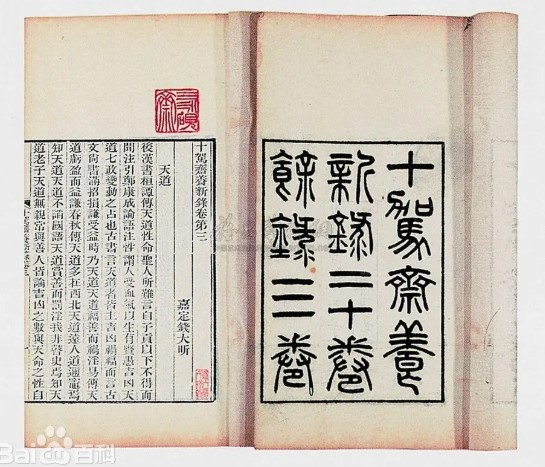 十駕齋養
新錄二十卷
餘錄三卷
十駕齋養新錄卷第三
嘉定錢大昕
天道
後漢書桓譚傳天道性命聖人所難言自子貢以下不得而
聞注引鄭康成論語注性謂人受血氣以生有賢愚吉凶天
道七政變動之占也古書言天道者皆主吉凶禍福而言古
文尚書滿招損謙受益時乃天道天道福善而禍淫易傳天
道虧盈而益謙春秋傳天道多在西北天道遠人道邇竈焉
知天道天道不謟國語天道賞善而罰淫我非瞽史焉知天
道老子天道無親常與善人皆論吉凶之數與天命之性自
Bai百科